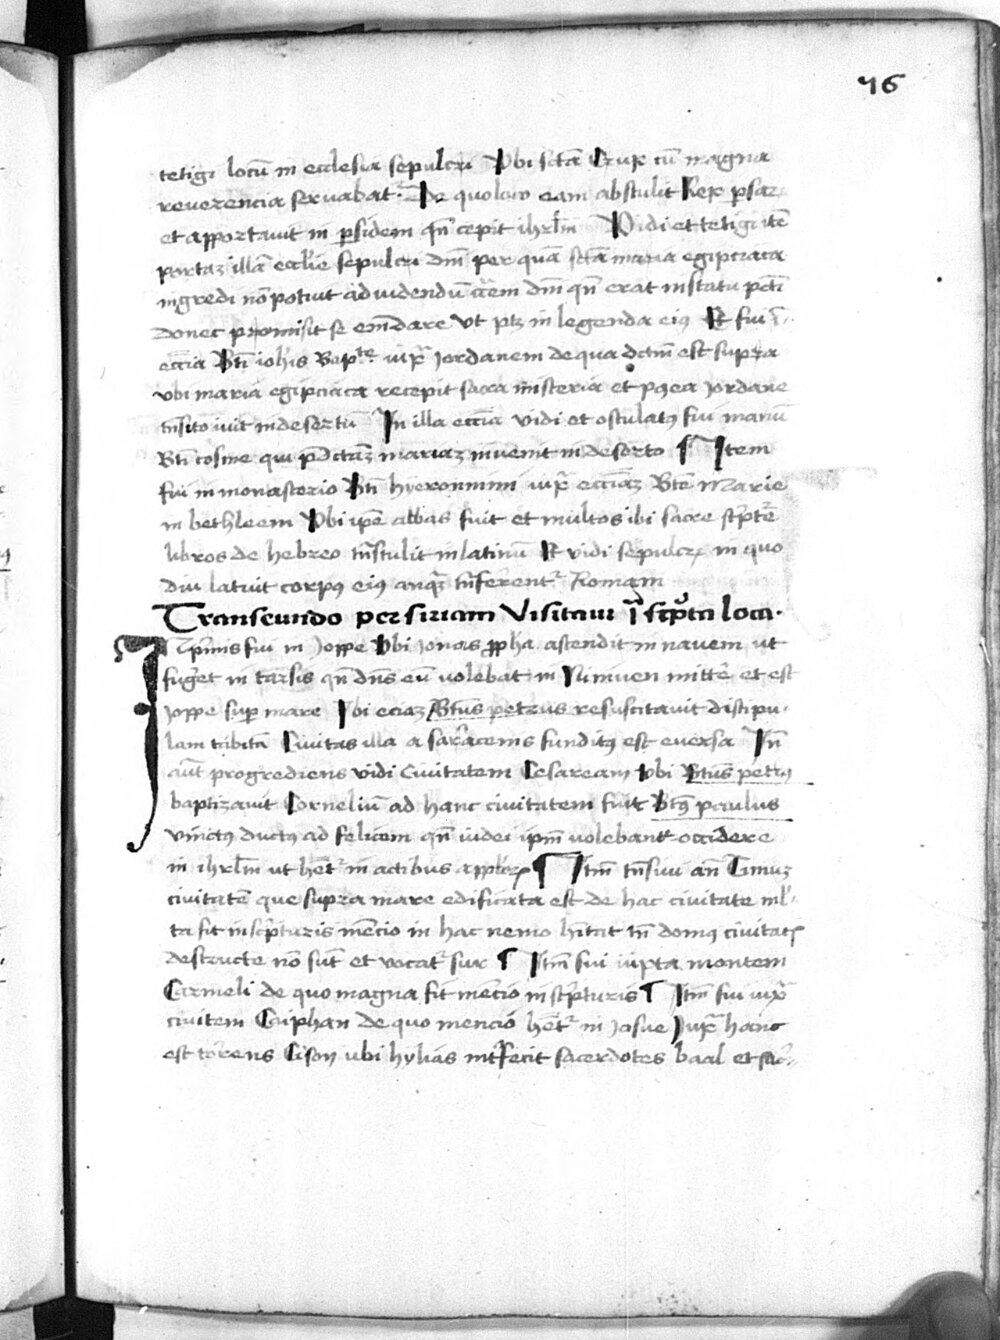 76
tetigi locū in ecclesia sepulcri Vbi sctā Crux cū magna
reuerencia seruabat᷑ De quo loco eam abstulit Rex psaꝝ
et apportauit in psidem qn̄ cepit ihrlm̄ Vidi et tetigi itē
portaz illā eccl̄ie sepulcri dn̄i per quā sctā maria egipciaca
ingredi nō potuit ad uidendū crucem dn̄i qn̄ erat in statu pcti
Donec promisit se emēdare vt ptz in legenda eiꝰ Et fui ī
eccīa Bti ioh̄is Bapte iuxᵃ Jordanem de qua dctm̄ est supra
vbi maria egipciaca recepit sacra misteria et postea Jordane
tn̄sito iuit in desertū In illa eccīa vidi et osculatꝰ fui manū
Bti cosme qui pdictaz mariaz inuenit in deserto ¶ Item
fui in monasterio Bti hyeronimi iuxᵃ eccīaz Bte Marie
in bethleem Vbi ipe abbas fuit et multos ibi sacre scptē
libros de hebreo tn̄stulit in latinū Et vidi sepulcrꝝ in quo
diu latuit corpꝰ eiꝰ anqᵃ tn̄sferent᷑ Romam
Transeundo per siriam Visitaui ī scpta loca.
Jn pmis fui in Joppe Vbi Jonas ppha ascendit in nauem ut
fugēt in tarsis qn̄ dn̄s eū uolebat in Niniuen mittē et est
Joppe sup mare Ibi eciaz Btus petrus resuscitauit discipu-
lam tabitā Ciuitas illa a saracenis funditꝰ est euersa In̄
aūt progrediens vidi ciuitatem Cesaream Vbi Btus petrꝰ
baptizauit Corneliū ad hanc ciuitatem fuit Btꝰ paulus
vinctus ductꝰ ad felicem qn̄ iudei ipm̄ uolebant occidere
in ihrlm̄ ut het᷑ in actibus applōꝝ ¶ Itm̄ tn̄siui an̄
ciuitatē que supra mare edificata est de hac ciuitate ml̄-
ta fit in scpturis mēcio in hac nemo hītat tn̄ domꝰ ciuitatis
destructe nō sūt et vocat᷑ sur ¶ Itm̄ fui iuxta montem
Carmeli de quo magna fit mēcio in scpturis ¶ Itm̄ fui iuxᵃ
ciuitem Cayphan de quo mencio het᷑ in Josue Juxᵃ hanc
est torrens Cison ubi hylias intfecit sacerdotes baal et